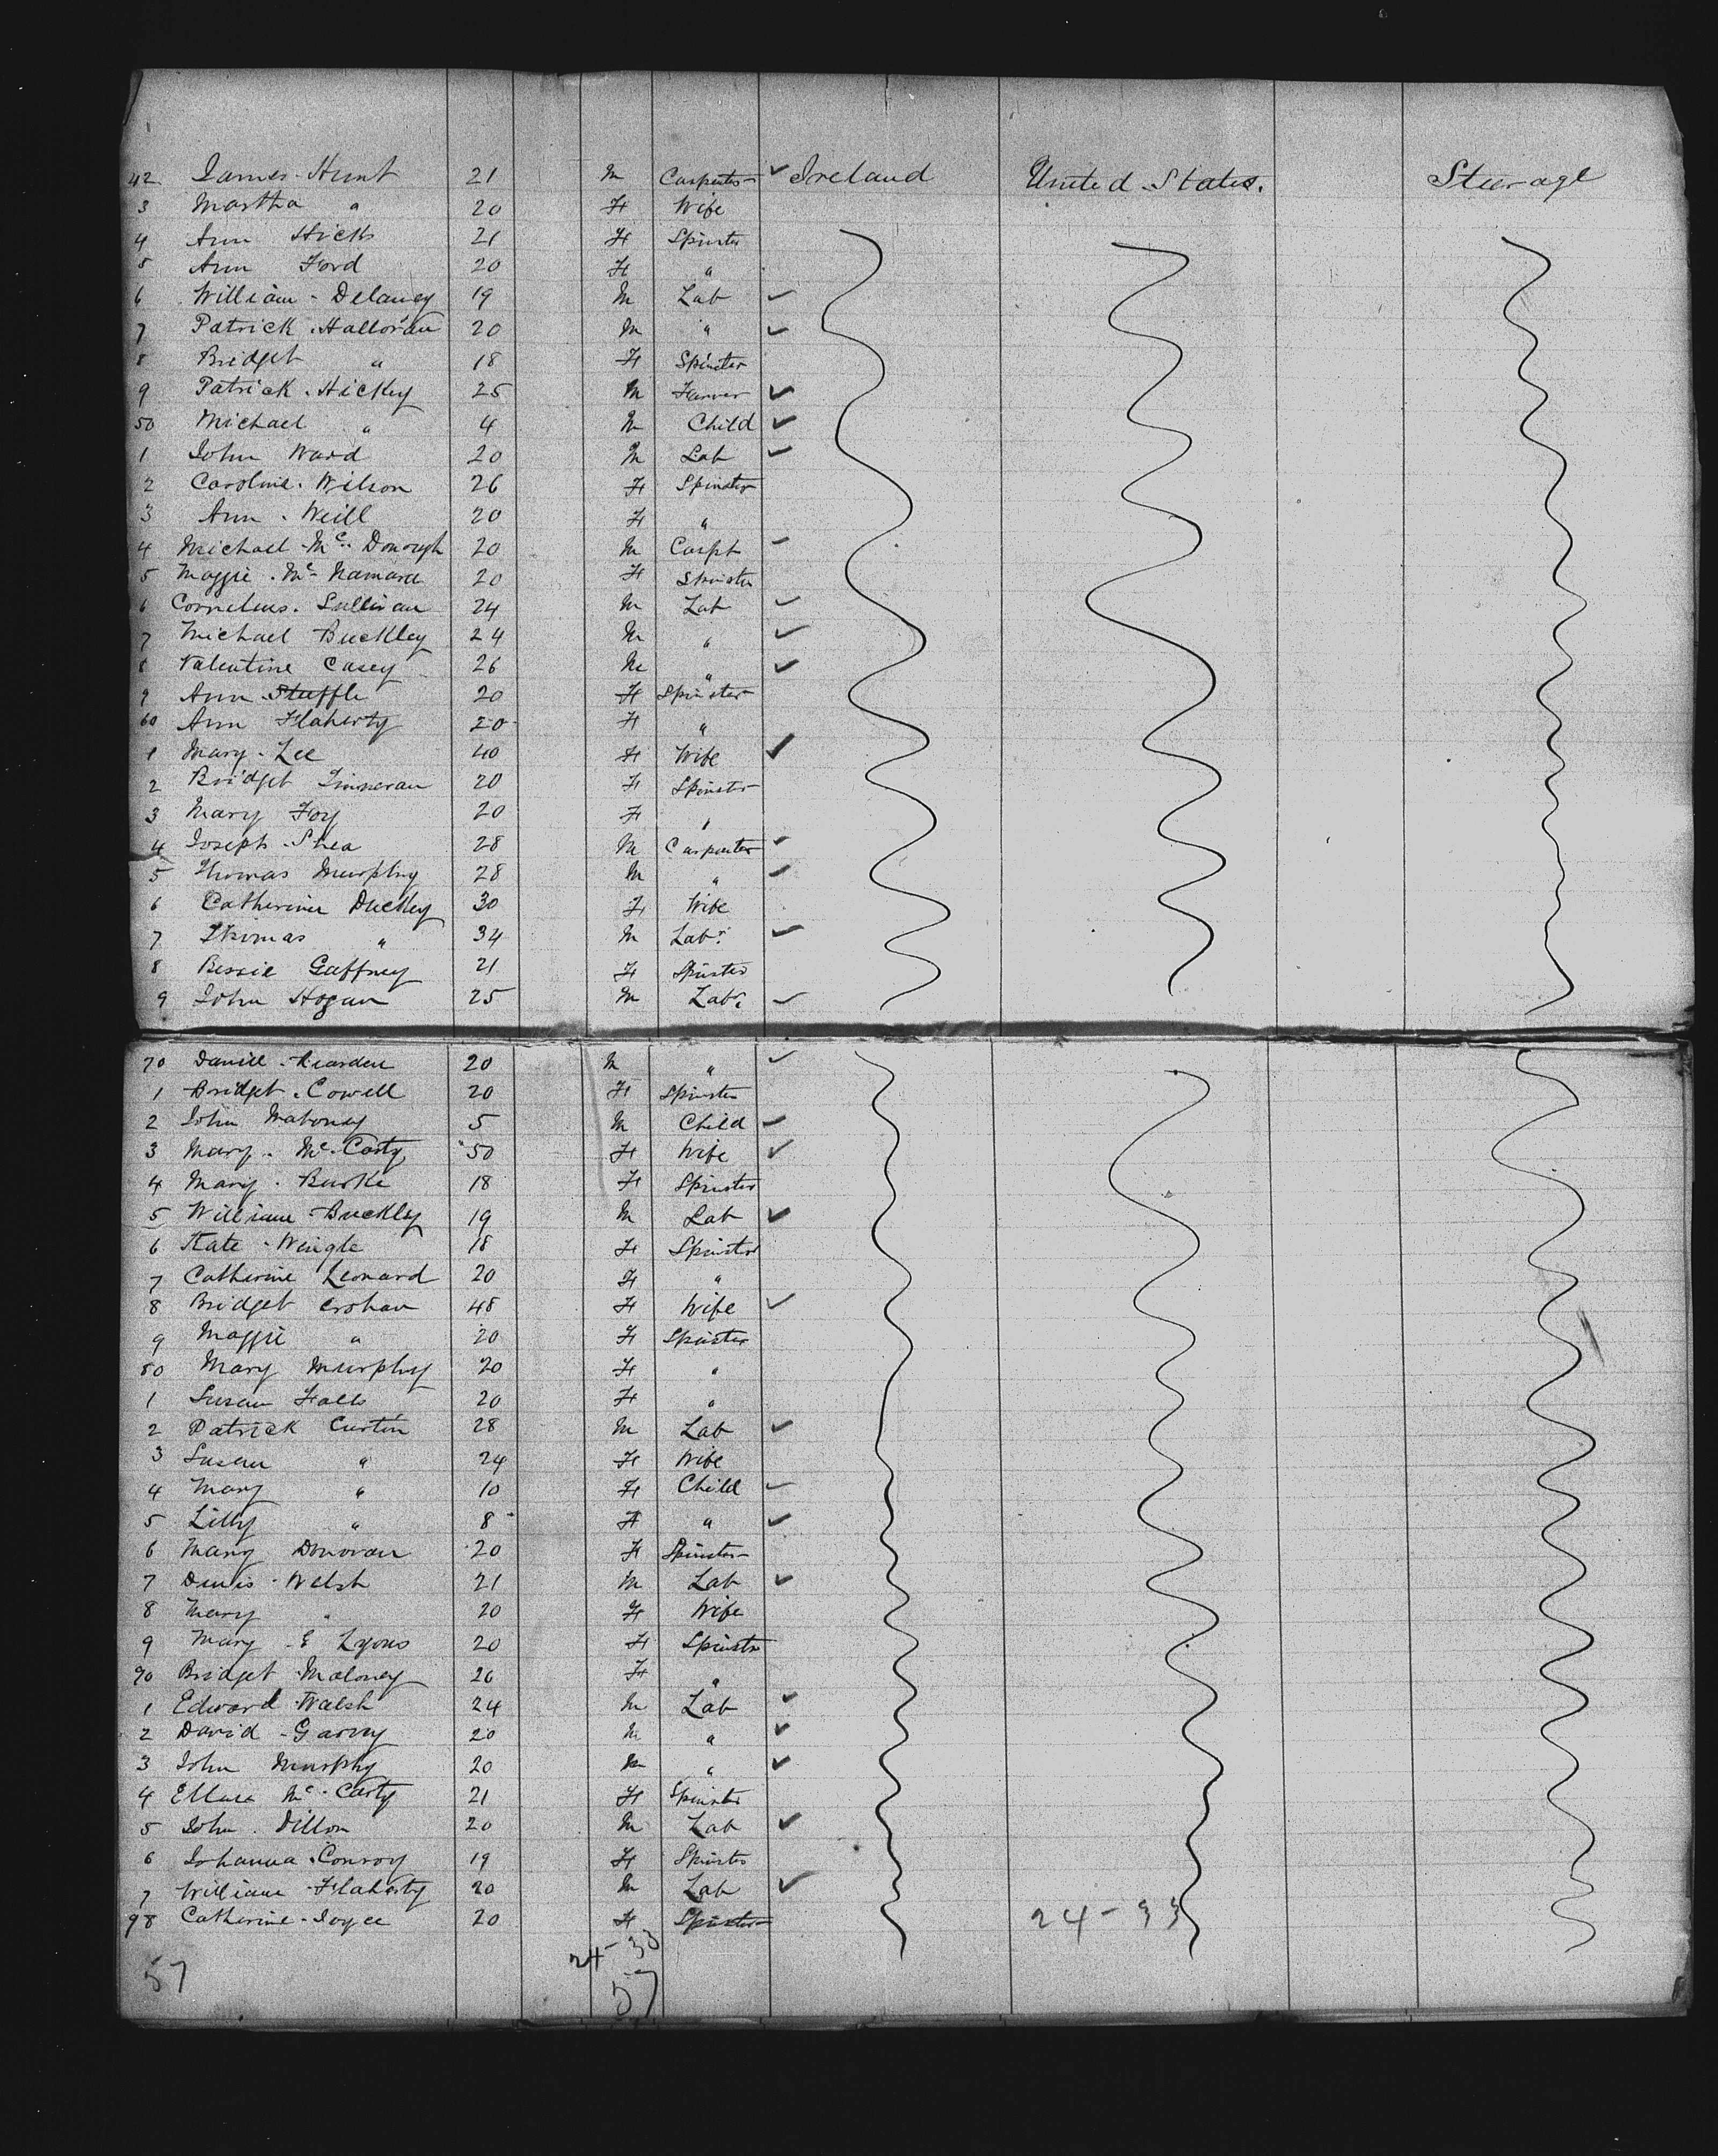 42. James Hunt 21 M Carpenter ✓ Ireland United States. Steerage
3 Martha " 20 F Wife
4 Ann Hicks 21 F Spinster
5 Ann Ford 20 F "
6 William Delaney 19 M Lab ✓
7 Patrick Halloran 20 M " ✓
8 Bridget " 18 F Spinster
9 Patrick Hickey 25 M Farmer ✓
50 Michael " 4 M Child ✓
1 John Ward 20 M Lab ✓
2 Caroline Wilson 26 F Spinster
3 Ann Weill 20 F "
4 Michael Mc Donough 20 M Carpt ✓
5 Maggie Mc Namara 20 F Spinster
6 Cornelius Sullivan 24 M Lab ✓
7 Michael Buckley 24 M " ✓
8 Valentine Casey 26 M " ✓
9 Ann 20 F Spinster
60 Ann Flaherty 20 F "
1 Mary Lee 40 F Wife ✓
2 Bridget Finneran 20 F Spinster
3 Mary Foy 20 F "
4 Joseph Shea 28 M Carpenter ✓
5 Thomas Murphy 28 M " ✓
6 Catherine Duckley 30 F Wife
7 Thomas " 34 M Labr ✓
8 Bessie Gaffney 21 F Spinster
9 John Hogan 25 M Labr ✓
70 Daniel Rearden 20 M " ✓
1 Bridget Cowell 20 F Spinster
2 John Mahoney 5 M Child ✓
3 Mary Mc Carty 50 F Wife ✓
4 Mary Burke 18 F Spinster
5 William Buckley 19 M Lab ✓
6 Kate Weigle 18 F Spinster
7 Catherine Leonard 20 F "
8 Bridget Crohan 48 F Wife ✓
9 Maggie " 20 F Spinster
80 Mary Murphy 20 F "
1 Susan Falls 20 F "
2 Patrick Curtin 28 M Lab ✓
3 Susan " 24 F Wife
4 Mary " 10 F Child ✓
5 Lilly " 8 F " ✓
6 Mary Donovan 20 F Spinster
7 Denis Welsh 21 M Lab ✓
8 Mary " 20 F Wife
9 Mary E Lyons 20 F Spinster
90 Bridget Maloney 20 F "
1 Edward Walsh 24 M Lab ✓
2 David Garvey 20 M " ✓
3 John Murphy 20 M " ✓
4 Ellen Mc Carty 21 F Spinster
5 John Dillon 20 M Lab ✓
6 Johanna Conroy 19 F Spinster
7 William Flaherty 20 M Lab ✓
98 Catherine Joyce 20 F Spinster 24-33
24-33
57 57